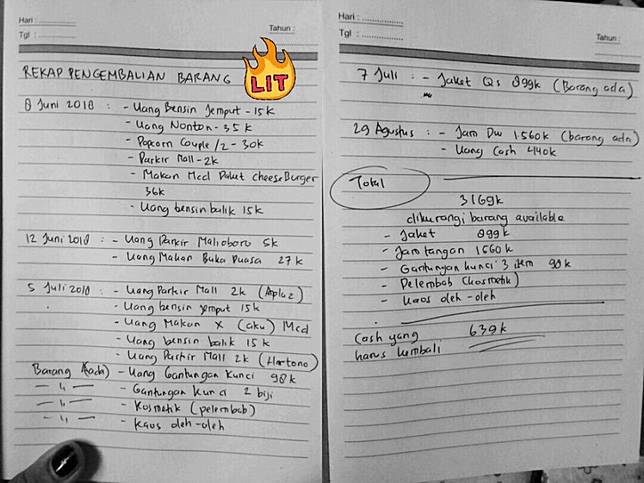 Hari :
Tgl :
Tahun :
LIT
REKAP PENGEMBALIAN BARANG
8 Juni 2018 : - Uang Bensin Jemput - 15k
- Uang Nonton - 35k
- Popcorn Couple /2 - 30k
- Parkir Mall - 2k
- Makan Mcd Paket cheeseBurger
36k
- Uang bensin balik 15k
12 Juni 2018 : - Uang Parkir Malioboro 5k
- Uang Makan Buka Puasa 27k
5 Juli 2018 : - Uang Parkir Mall 2k (Amplaz)
- Uang bensin jemput 15k
- Uang Makan X (aku) Mcd
- Uang bensin balik 15k
- Uang Parkir Mall 2k (Hartono)
Barang (ada) - Uang Gantungan Kunci 98k
— 〃 — - Gantungan Kunci 2 biji
— 〃 — - Kosmetik (pelembab)
— 〃 — - Kaos oleh-oleh
Hari :
Tgl :
Tahun :
7 Juli : - Jaket QS 899k (Barang ada)
29 Agustus : - Jam DW 1560k (barang ada)
- Uang Cash 440k
Total
3169k
dikurangi barang available
- Jaket 899k
- Jam tangan 1560k
- Gantungan kunci 3 item 98k
- Pelembab (kosmetik)
- Kaos oleh-oleh
Cash yang 639k
harus kembali